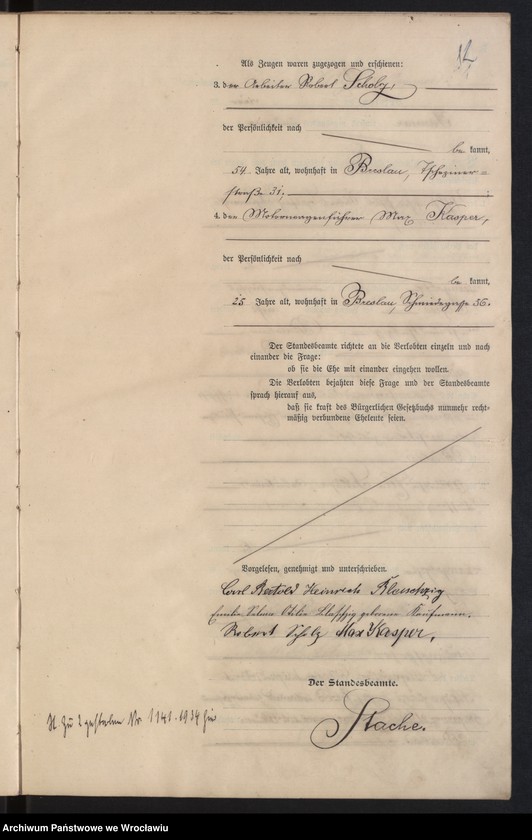 12
Als Zeugen waren zugezogen und erschienen:
3. der Arbeiter Robert Scholz,
der Persönlichkeit nach
be kannt,
54 Jahre alt, wohnhaft in Breslau, Tschepiner=
straße 31,
4. der Motorwagenführer Max Kasper,
der Persönlichkeit nach
be kannt,
25 Jahre alt, wohnhaft in Breslau, Schmiedegasse 36.
Der Standesbeamte richtete an die Verlobten einzeln und nach
einander die Frage:
ob sie die Ehe mit einander eingehen wollen.
Die Verlobten bejahten diese Frage und der Standesbeamte
sprach hierauf aus,
daß sie kraft des Bürgerlichen Gesetzbuchs nunmehr recht-
mäßig verbundene Eheleute seien.
Vorgelesen, genehmigt und unterschrieben.
Carl Bertold Heinrich
Selma Ottilie geborene Kaufmann.
Robert Scholz Max Kasper,
Der Standesbeamte.
Stache.
zu 2 gestorben Nr. 1141.1934
Archiwum Państwowe we Wrocławiu